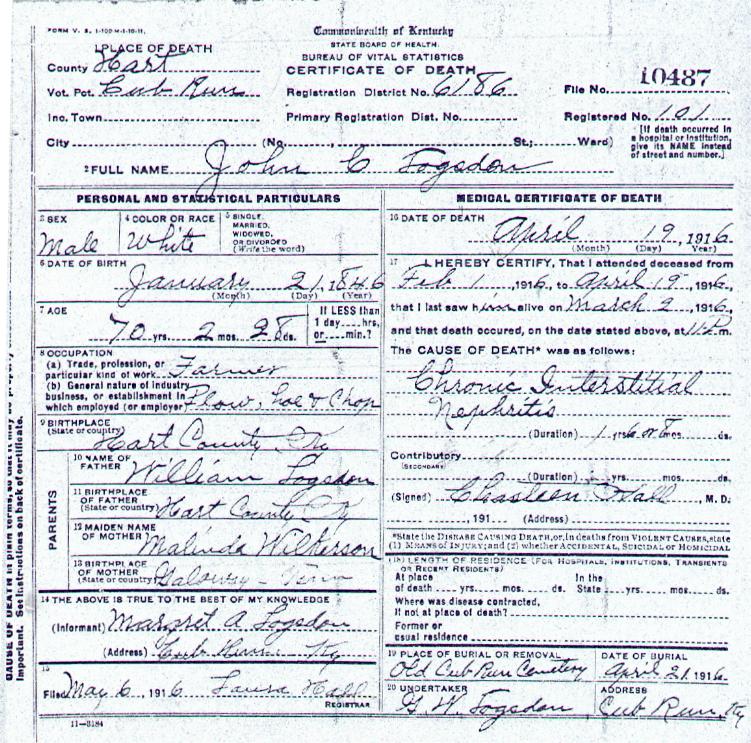 FORM V. S. 1-100 M-1-10-11.
Commonwealth of Kentucky
STATE BOARD OF HEALTH.
BUREAU OF VITAL STATISTICS
CERTIFICATE OF DEATH
1 PLACE OF DEATH
County Hart
Vot. Pct. Cub Run
Inc. Town
City (No. , St.; Ward)
Registration District No. 6186
Primary Registration Dist. No.
File No. 10487
Registered No. 101
[If death occurred in
a hospital or institution,
give its NAME instead
of street and number.]
2 FULL NAME John C Logsdon
PERSONAL AND STATISTICAL PARTICULARS
3 SEX
Male
4 COLOR OR RACE
White
5 SINGLE,
MARRIED,
WIDOWED,
OR DIVORCED
(Write the word)
6 DATE OF BIRTH
January 21, 1846
(Month) (Day) (Year)
7 AGE
70 yrs. 2 mos. 28 ds.
If LESS than
1 day....hrs,
or....min.?
8 OCCUPATION
(a) Trade, profession, or
particular kind of work Farmer
(b) General nature of industry
business, or establishment in
which employed (or employer) Plow, hoe & Chop
9 BIRTHPLACE
(State or country) Hart County Ky
PARENTS
10 NAME OF
FATHER William Logsdon
11 BIRTHPLACE
OF FATHER
(State or country) Hart County Ky
12 MAIDEN NAME
OF MOTHER Malinda Wilkerson
13 BIRTHPLACE
OF MOTHER
(State or country) - Tenn
14 THE ABOVE IS TRUE TO THE BEST OF MY KNOWLEDGE
(Informant) Margret A Logsdon
(Address) Cub Run Ky
15
Filed May 6, 1916 Laura Hall
REGISTRAR
11-3184
MEDICAL CERTIFICATE OF DEATH
16 DATE OF DEATH
April 19, 1916
(Month) (Day) (Year)
17 I HEREBY CERTIFY, That I attended deceased from
Feb 1, 1916, to April 19, 1916,
that I last saw him alive on March 2, 1916,
and that death occured, on the date stated above, at 11 P m.
The CAUSE OF DEATH* was as follows:
Chronic Interstitial
Nephritis
(Duration) 1 yrs 6 or 8 mos. ds.
Contributory
(SECONDARY)
(Duration) yrs. mos. ds.
(Signed) Hall, M. D.
, 191 . (Address)
*State the DISEASE CAUSING DEATH, or, in deaths from VIOLENT CAUSES, state
(1) MEANS OF INJURY; and (2) whether ACCIDENTAL, SUICIDAL or HOMICIDAL
(18) LENGTH OF RESIDENCE (FOR HOSPITALS, INSTITUTIONS, TRANSIENTS
OR RECENT RESIDENTS)
At place In the
of death....yrs.....mos.....ds. State....yrs.....mos.....ds.
Where was disease contracted,
if not at place of death?
Former or
usual residence
19 PLACE OF BURIAL OR REMOVAL
Old Cub Run Cemetery
DATE OF BURIAL
April 21, 1916
20 UNDERTAKER
G. W. Logsdon
ADDRESS
Cub Run, Ky
CAUSE OF DEATH in plain terms, so that it may be properly
Important. See instructions on back of certificate.